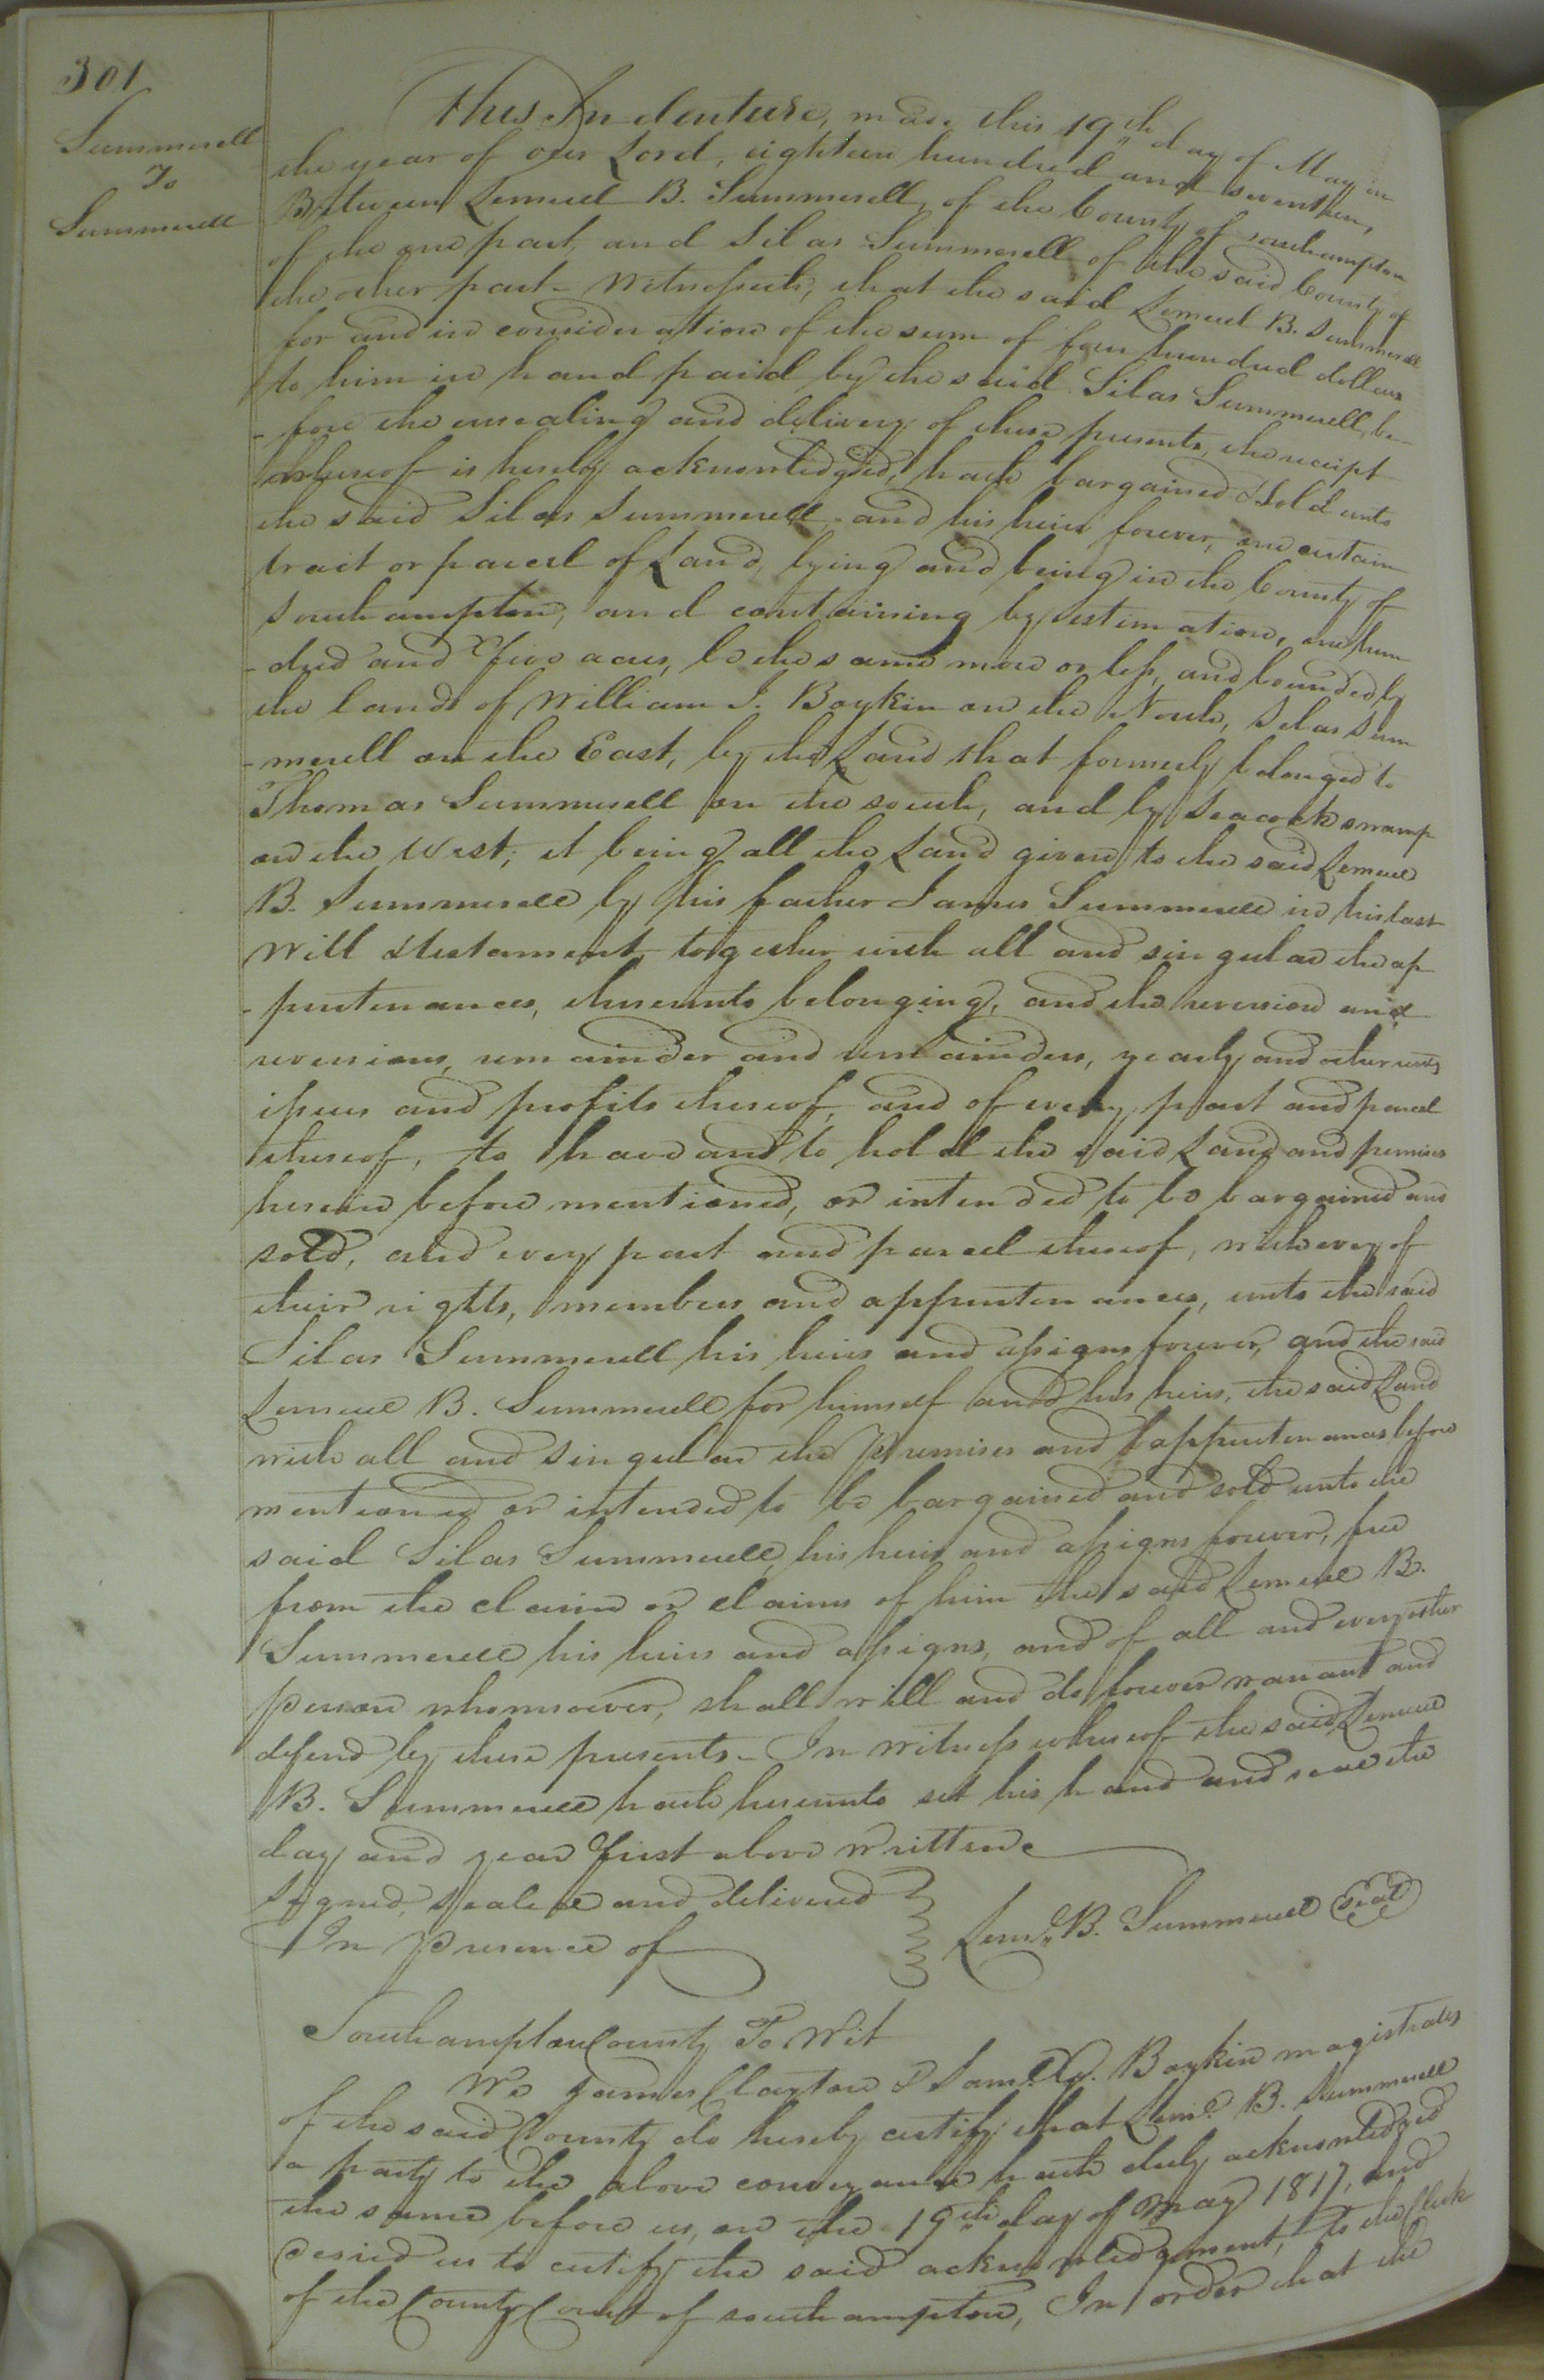 301
Summerell
To
Summerell
This Indenture, made this 19th day of May in
the year of our Lord, eighteen hundred and seventeen,
Between Lemuel B. Summerell, of the County of Southampton
of the one part, and Silas Summerell of the said County of
the other part - Witnesseth, that the said Lemuel B. Summerell
for and in consideration of the sum of four hundred dollars
to him in hand paid by the said Silas Summerell, be-
-fore the ensealing and delivery of these presents, the receipt
whereof is hereby acknowledged, hath bargained & sold unto
the said Silas Summerell, and his heirs forever, one certain
tract or parcel of Land, lying and being in the County of
Southampton, and containing by estimation, one hun
-dred and five acres, be the same more or less, and bounded by
the lands of William J. Boykin on the North, Silas Sum
-merell on the East, by the Land that formerly belonged to
Thomas Summerell on the south, and by Seacock swamp
on the West; it being all the Land given to the said Lemuel
B. Summerell by his father James Summerell in his last
Will & testament, together with all and singular the ap
-purtenances, thereunto belonging, and the reversion and
reversions, remainder and remainders, yearly and other rents
issues and profits thereof, and of every part and parcel
thereof, to have and to hold the said Land and premises
herein before mentioned, or intended to be bargained and
sold, and every part and parcel thereof, with every of
their rights, members and appurtenances, unto the said
Silas Summerell his heirs and assigns forever, and the said
Lemuel B. Summerell for himself and his heirs, the said Land
with all and singular the premises and appurtenances before
mentioned or intended to be bargained and sold unto the
said Silas Summerell, his heirs and assigns forever, free
from the claim or claims of him the said Lemuel B.
Summerell his heirs and assigns, and of all and every other
person whomsoever, shall will and do forever warrant and
defend by these presents - In witness whereof the said Lemuel
B. Summerell hath hereunto set his hand and seal the
day and year first above written
Signed, sealed and delivered
In presence of
Leml. B. Summerell Seal
Southampton County To Wit
We James Clayton & Saml. Boykin magistrates
of the said County do hereby certify that Leml. B. Summerell
a party to the above conveyance hath duly acknowledged
the same before us, on the 19th day of May 1817, and
desired us to certify the said acknowledgment, to the Clerk
of the County Court of southampton, In order that the